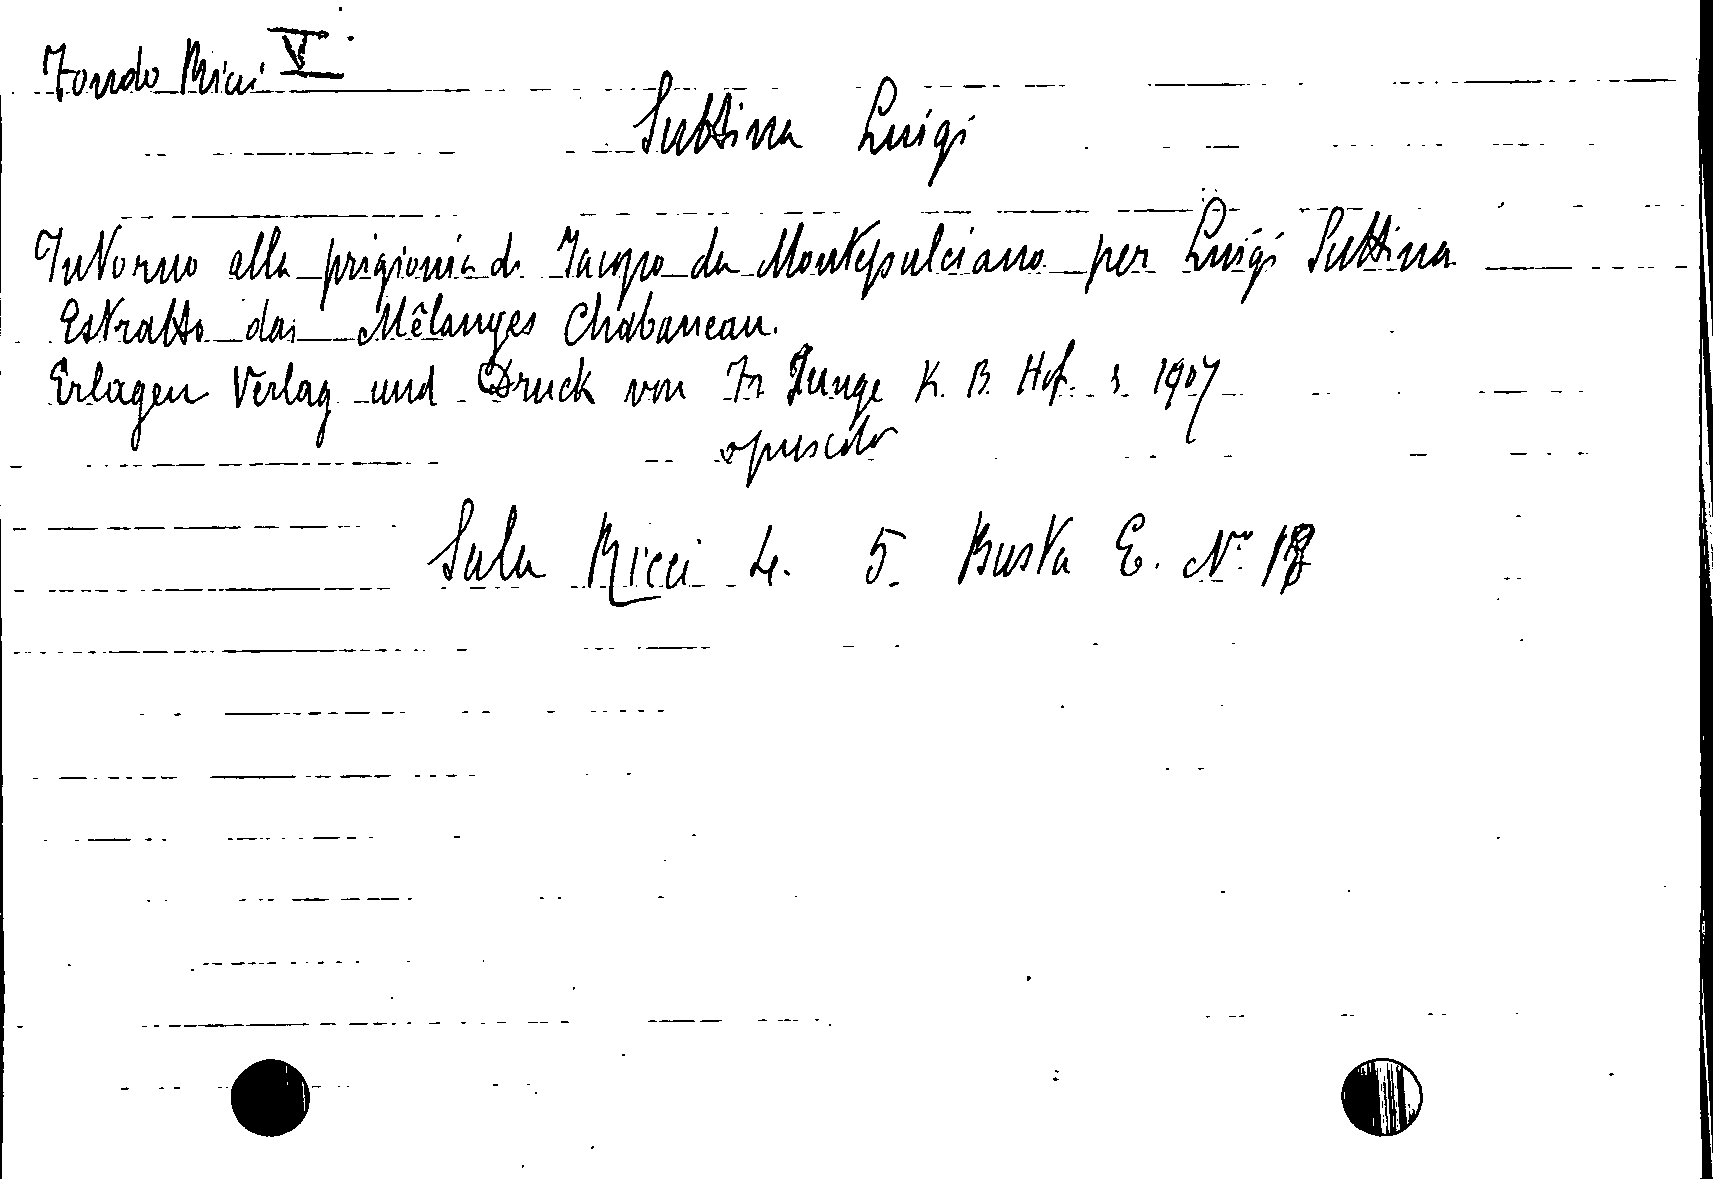 Fondo Ricci V.
Suttina Luigi
Intorno alla prigionia di Jacopo da Montepulciano per Luigi Suttina
Estratto dai Mêlanges Chabaneau.
Erlagen Verlag und Druck von Fr Junge K. B. Hof. 1907
opuscolo
Sala Ricci 4. 5. Busta E. Nº